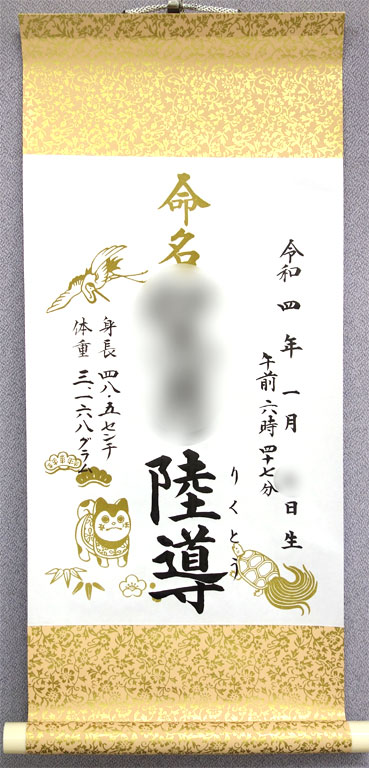 命名
令和四年一月日生
午前六時四十七分
りくとう
陸導
身長 四八・五センチ
体重 三、一六八グラム